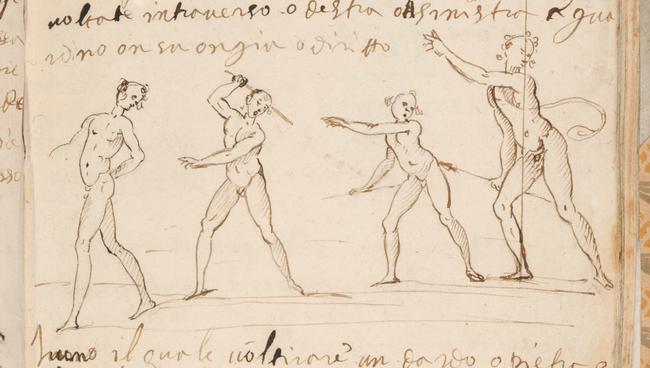 voltate intraverso o destra o sinistra e gua
rdino on su ongiu o diritto
huomo il quale vol tirare un dardo o pietra